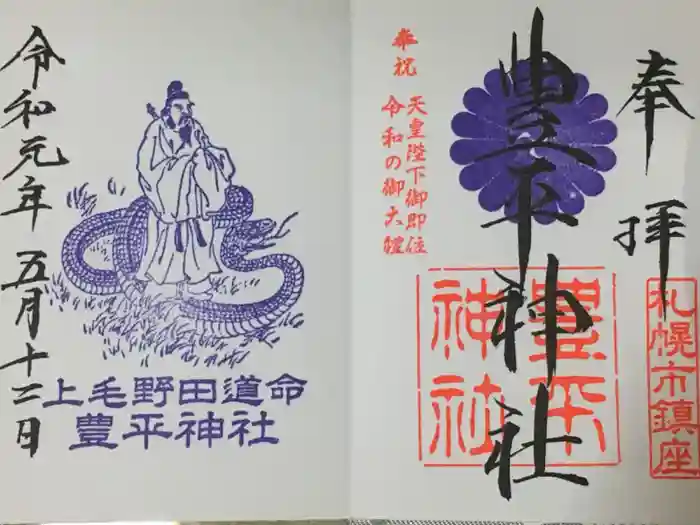 奉拝
札幌市鎮座
豊平神社
豊平
神社
天皇陛下御即位
奉祝 令和の御大禮
令和元年 五月十二日
上毛野田道命
豊平神社